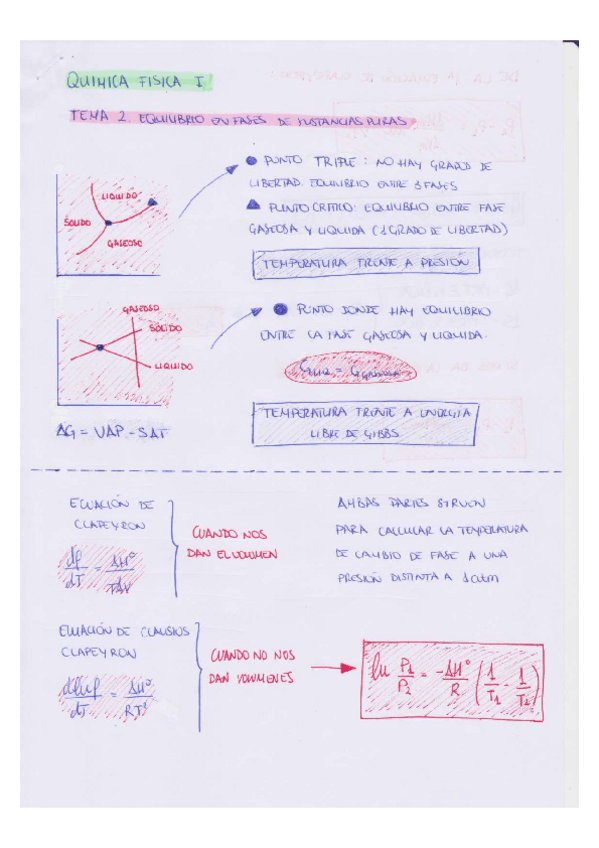 QUIMICA FISICA I
TEMA 2. EQUILIBRIO EN FASES DE SUSTANCIAS PURAS
LIQUIDO
SÓLIDO
GASEOSO
PUNTO TRIPLE: NO HAY GRADOS DE
LIBERTAD. EQUILIBRIO ENTRE 3 FASES
PUNTO CRITICO: EQUILIBRIO ENTRE FASE
GASEOSA Y LIQUIDA (1 GRADO DE LIBERTAD)
TEMPERATURA FRENTE A PRESIÓN
GASEOSO
SÓLIDO
LIQUIDO
ΔG = VΔP - SΔT
PUNTO DONDE HAY EQUILIBRIO
ENTRE LA FASE GASEOSA Y LIQUIDA.
TEMPERATURA FRENTE A ENERGIA
LIBRE DE GIBBS
ECUACIÓN DE
CLAPEYRON
dp/dT = ΔH°/TΔV
CUANDO NOS
DAN EL VOLUMEN
AMBAS PARTES SIRVEN
PARA CALCULAR LA TEMPERATURA
DE CAMBIO DE FASE A UNA
PRESIÓN DISTINTA A 1 atm
ECUACIÓN DE CLAUSIUS
CLAPEYRON
dlnp/dT = ΔH°/RT²
CUANDO NO NOS
DAN VOLUMENES
ln P1/P2 = -ΔH°/R (1/T1 - 1/T2)